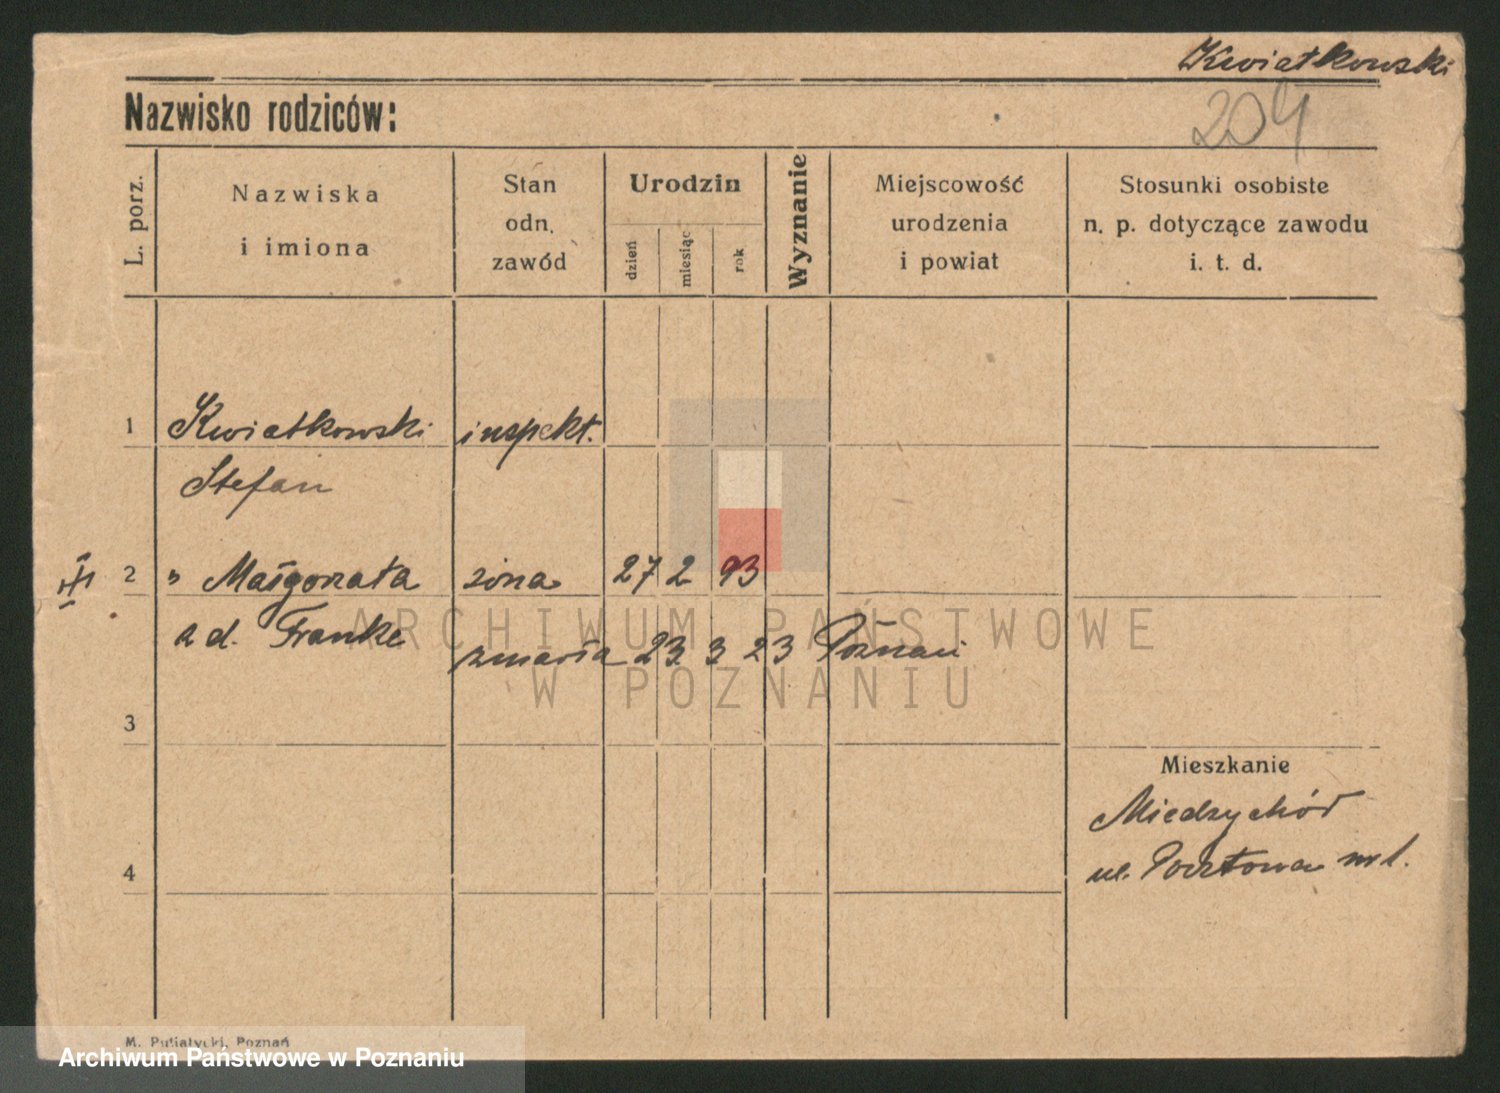 Kwiatkowski
Nazwisko rodziców:
204
L. porz.
Nazwiska
i imiona
Stan
odn.
zawód
Urodzin
dzień
miesiąc
rok
Wyznanie
Miejscowość
urodzenia
i powiat
Stosunki osobiste
n. p. dotyczące zawodu
i. t. d.
1 Kwiatkowski inspekt.
Stefan
2 " Małgorzata żona 27 2 93
z d. Franke
zmarła 23 3 23 Poznań
ARCHIWUM PAŃSTWOWE
W POZNANIU
3
Mieszkanie
Miedzychód
ul. Pocztowa nr 1.
4
M. Putiatycki, Poznań
Archiwum Państwowe w Poznaniu